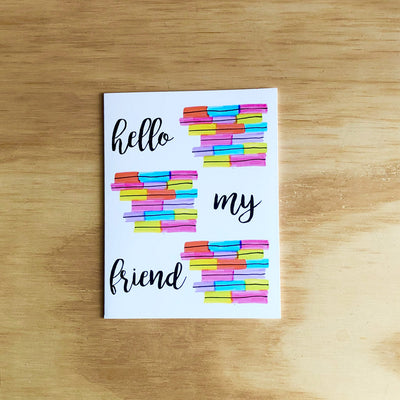 hello
my
friend